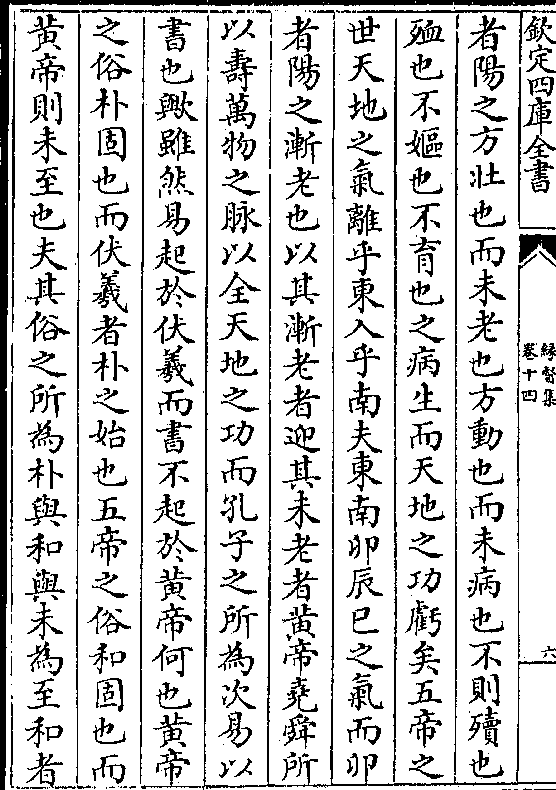 欽定四庫全書
緣督集
卷十四
六
者陽之方壯也而未老也方動也而未病也不則殰也
殈也不嫗也不育也之病生而天地之功虧矣五帝之
世天地之氣離乎東入乎南夫東南卯辰巳之氣而卯
者陽之漸老也以其漸老者迎其未老者黃帝堯舜所
以壽萬物之脉以全天地之功而孔子之所為次易以
書也歟雖然易起於伏羲而書不起於黃帝何也黃帝
之俗朴固也而伏羲者朴之始也五帝之俗和固也而
黃帝則未至也夫其俗之所為朴與和與未為至和者